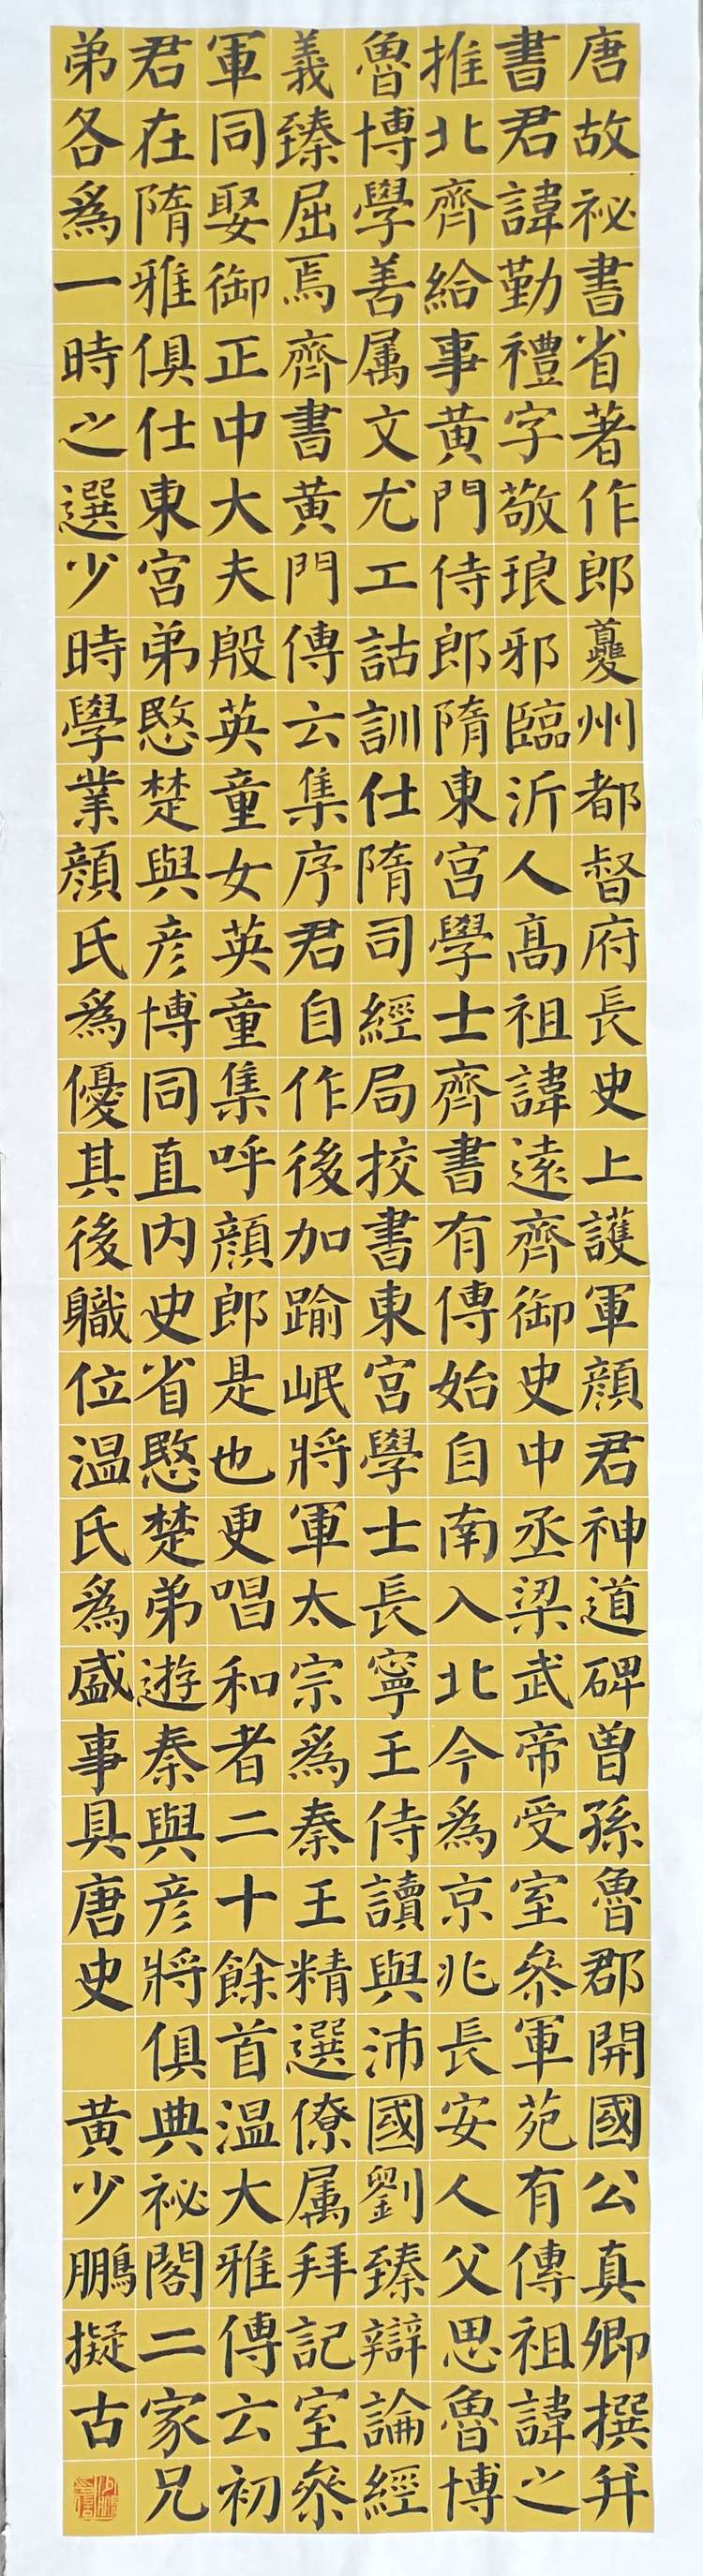 唐故祕書省著作郎夔州都督府長史上護軍顔君神道碑曽孫魯郡開國公真卿撰并
書君諱勤禮字敬琅邪臨沂人高祖諱遠齊御史中丞梁武帝受室叅軍苑有傳祖諱之
推北齊給事黄門侍郎隋東宮學士齊書有傳始自南入北今爲京兆長安人父思魯博
魯博學善属文尤工詁訓仕隋司經局挍書東宮學士長寧王侍讀與沛國劉臻辯論經
義臻屈焉齊書黄門傳云集序君自作後加踰岷將軍太宗爲秦王精選僚属拜記室叅
軍同娶御正中大夫殷英童女英童集呼顔郎是也更唱和者二十餘首温大雅傳云初
君在隋雅俱仕東宮弟愍楚與彦博同直内史省愍楚弟遊秦與彦將俱典祕閣二家兄
弟各爲一時之選少時學業顔氏爲優其後職位温氏爲盛事具唐史
黄少鵬擬古